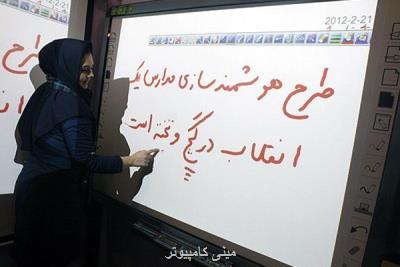 2012-2-21
طرح هوشمندسازی مدارس یک
انقلاب در گچ و تخته است
طرح
مینی کامپیوتر